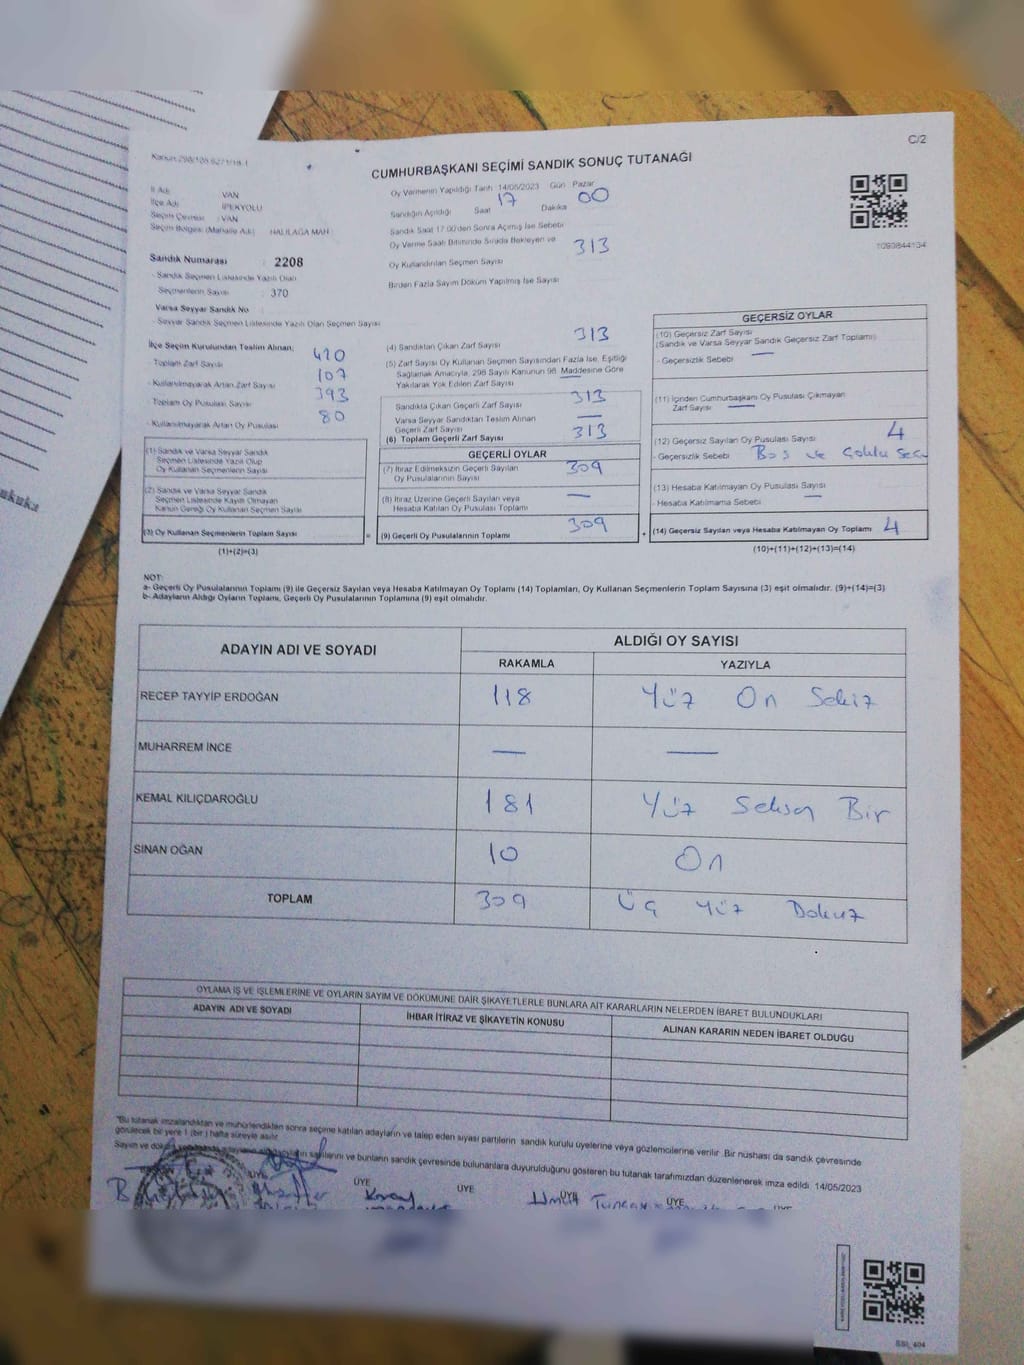 C/2
CUMHURBAŞKANI SEÇİMİ SANDIK SONUÇ TUTANAĞI
İl Adı VAN
İlçe Adı İPEKYOLU
Seçim Çevresi : VAN
Seçim Bölgesi (Mahalle Adı) HALİLAĞA MAH
Oy Vermenin Yapıldığı Tarih 14/05/2023 Gün Pazar
Sandığın Açıldığı Saat 17 Dakika 00
Sandık Saat 17:00'den Sonra Açılmış İse Sebebi
Oy Verme Saati Bitiminde Sırada Bekleyen ve
Oy Kullandırılan Seçmen Sayısı 313
Birden Fazla Sayım Döküm Yapılmış İse Sayısı
1093844134
Sandık Numarası : 2208
- Sandık Seçmen Listesinde Yazılı Olan
Seçmenlerin Sayısı : 370
Varsa Seyyar Sandık No
- Seyyar Sandık Seçmen Listesinde Yazılı Olan Seçmen Sayısı
İlçe Seçim Kurulundan Teslim Alınan;
Toplam Zarf Sayısı 420
- Kullanılmayarak Artan Zarf Sayısı 107
- Toplam Oy Pusulası Sayısı 393
- Kullanılmayarak Artan Oy Pusulası 80
(1) Sandık ve Varsa Seyyar Sandık
Seçmen Listesinde Yazılı Olup
Oy Kullanan Seçmenlerin Sayısı
(2) Sandık ve Varsa Seyyar Sandık
Seçmen Listesinde Kayıtlı Olmayan
Kanun Gereği Oy Kullanan Seçmen Sayısı
(3) Oy Kullanan Seçmenlerin Toplam Sayısı
(1)+(2)=(3)
=
(4) Sandıktan Çıkan Zarf Sayısı 313
(5) Zarf Sayısı Oy Kullanan Seçmen Sayısından Fazla İse, Eşitliği
Sağlamak Amacıyla, 298 Sayılı Kanunun 98. Maddesine Göre
Yakılarak Yok Edilen Zarf Sayısı —
Sandıkta Çıkan Geçerli Zarf Sayısı 313
Varsa Seyyar Sandıktan Teslim Alınan
Geçerli Zarf Sayısı —
(6) Toplam Geçerli Zarf Sayısı 313
GEÇERLİ OYLAR
(7) İtiraz Edilmeksizin Geçerli Sayılan
Oy Pusulalarının Sayısı 309
(8) İtiraz Üzerine Geçerli Sayılan veya
Hesaba Katılan Oy Pusulası Toplamı —
(9) Geçerli Oy Pusulalarının Toplamı 309
+
GEÇERSİZ OYLAR
(10) Geçersiz Zarf Sayısı
(Sandık ve Varsa Seyyar Sandık Geçersiz Zarf Toplamı)
- Geçersizlik Sebebi —
(11) İçinden Cumhurbaşkanı Oy Pusulası Çıkmayan
Zarf Sayısı —
(12) Geçersiz Sayılan Oy Pusulası Sayısı 4
- Geçersizlik Sebebi Boş ve
(13) Hesaba Katılmayan Oy Pusulası Sayısı —
- Hesaba Katılmama Sebebi
(14) Geçersiz Sayılan veya Hesaba Katılmayan Oy Toplamı 4
(10)+(11)+(12)+(13)=(14)
NOT:
a- Geçerli Oy Pusulalarının Toplamı (9) ile Geçersiz Sayılan veya Hesaba Katılmayan Oy Toplamı (14) Toplamları, Oy Kullanan Seçmenlerin Toplam Sayısına (3) eşit olmalıdır. (9)+(14)=(3)
b- Adayların Aldığı Oyların Toplamı, Geçerli Oy Pusulalarının Toplamına (9) eşit olmalıdır.
ADAYIN ADI VE SOYADI ALDIĞI OY SAYISI
RAKAMLA YAZIYLA
RECEP TAYYİP ERDOĞAN 118 Yüz On Sekiz
MUHARREM İNCE — —
KEMAL KILIÇDAROĞLU 181 Yüz Seksen Bir
SİNAN OĞAN 10 On
TOPLAM 309 Üç Yüz Dokuz
OYLAMA İŞ VE İŞLEMLERİNE VE OYLARIN SAYIM VE DÖKÜMÜNE DAİR ŞİKAYETLERLE BUNLARA AİT KARARLARIN NELERDEN İBARET BULUNDUKLARI
ADAYIN ADI VE SOYADI İHBAR İTİRAZ VE ŞİKAYETİN KONUSU ALINAN KARARIN NEDEN İBARET OLDUĞU
*Bu tutanak imzalandıktan ve mühürlendikten sonra seçime katılan adayların ve talep eden siyasi partilerin sandık kurulu üyelerine veya gözlemcilerine verilir. Bir nüshası da sandık çevresinde
görülecek bir yere 1 (bir) hafta süreyle asılır.
Sayım ve döküm sayılarını ve bunların sandık çevresinde bulunanlara duyurulduğunu gösteren bu tutanak tarafımızdan düzenlenerek imza edildi. 14/05/2023
ÜYE ÜYE ÜYE ÜYE ÜYE ÜYE